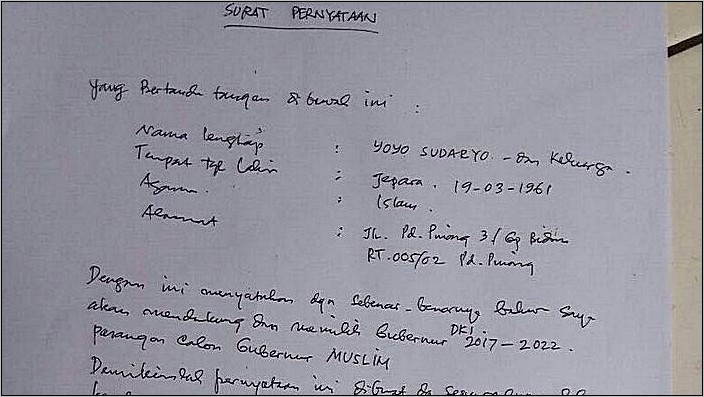 SURAT PERNYATAAN
Yang Bertanda tangan di bawah ini :
Nama lengkap : YOYO SUDARYO - dan Keluarga.
Tempat tgl Lahir : Jepara. 19-03-1961
Agama. : Islam.
Alamat : Jl. Pd. Pinang 3/Gg Bidin
RT.005/02 Pd. Pinang
Dengan ini menyatakan dgn sebenar-benarnya bahwa Saya
akan mendukung dan memilih Gubernur DKI 2017-2022.
pasangan Calon Gubernur MUSLIM
pernyataan ini dibuat